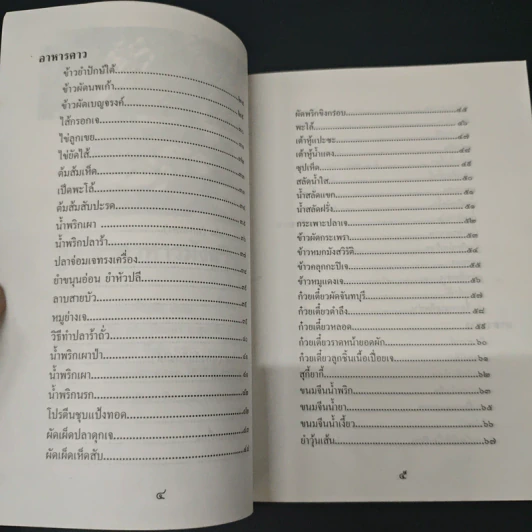 อาหารคาว
ข้าวยำปักษ์ใต้
ข้าวผัดนพเก้า
ข้าวผัดเบญจรงค์
ไส้กรอกเจ
ไข่ลูกเขย
ไข่ยัดไส้
ต้มส้มเห็ด
เป็ดพะโล้
ต้มส้มสับปะรด
น้ำพริกเผา
น้ำพริกปลาร้า
ปลาจ่อมเจทรงเครื่อง
ยำขนุนอ่อน ยำหัวปลี
ลาบสายบัว
หมูย่างเจ
วิธีทำปลาร้าถั่ว
น้ำพริกเผาป่า
น้ำพริกเผา
น้ำพริกนรก
โปรตีนชุบแป้งทอด
ผัดเผ็ดปลาดุกเจ
ผัดเผ็ดเห็ดสับ
๔
ผัดพริกขิงกรอบ ๔๕
พะโล้ ๔๖
เต้าหู้แปะซะ ๔๗
เต้าหู้น้ำแดง ๔๘
ซุปเห็ด ๔๙
สลัดน้ำใส ๕๐
น้ำสลัดแขก
น้ำสลัดฝรั่ง ๕๑
กระเพาะปลาเจ ๕๒
ข้าวผัดกระเพรา ๕๓
ข้าวหมกมังสวิรัติ ๕๔
ข้าวคลุกกะปิเจ ๕๕
ข้าวหมูแดงเจ ๕๖
ก๋วยเตี๋ยวผัดจันทบุรี ๕๗
ก๋วยเตี๋ยวตำลึง ๕๘
ก๋วยเตี๋ยวหลอด ๕๙
ก๋วยเตี๋ยวราดหน้ายอดผัก ๖๐
ก๋วยเตี๋ยวลูกชิ้นเนื้อเปื่อยเจ ๖๑
สุกี้ยากี้ ๖๒
ขนมจีนน้ำพริก ๖๓
ขนมจีนน้ำยา ๖๕
ขนมจีนน้ำเงี้ยว ๖๖
ยำวุ้นเส้น ๖๗
๕